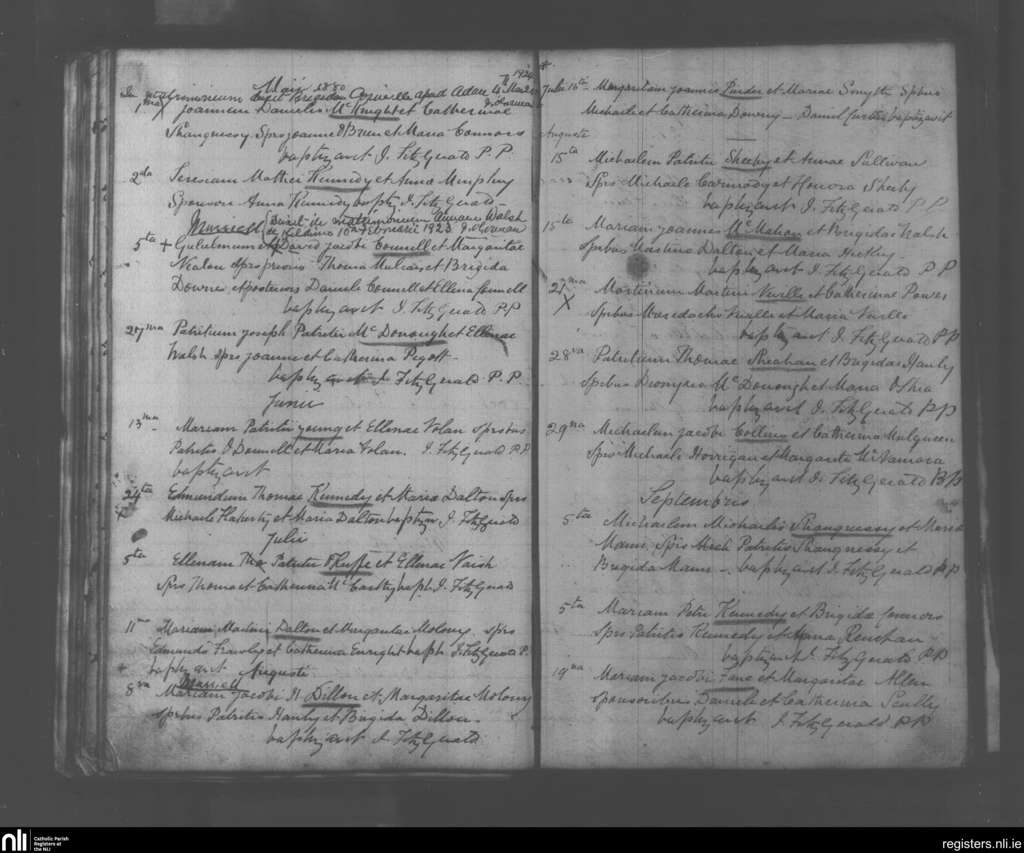 Maii 1880
In matrimonium duxit Brigidam apud Adare
1ma Joannem Danielis McKnight et Catherinae
Shaugnessy Sprs Joanne OBrien et Maria Connors
baptizavit J. FitzGerald P.P
2da Teresiam Mathei Kennedy et Anna Murphy
Sponsore Anna Kennedy baptz J. FitzGerald
Married
Februarii 1923
5ta Gulielmum et David Jacobi Connell et Margaritae
Nealon Sprs prioris Thoma Mulcay et Brigida
Downes, et posterioris Daniele Connell et Ellena Connell
baptizavit J. FitzGerald P.P
27ma Patritium Joseph Patritii McDonough et Ellenae
Walsh Sprs Joanne et Catherina Pegott
baptizavit J. FitzGerald P.P.
Junii
13ma Mariam Patritii Young et Ellenae Nolan Sprobus
Patritio O Donnell et Maria Nolan. J. FitzGerald P.P
baptizavit
24ta Edmundum Thomae Kennedy et Maria Dalton Sprs
Michaele Flaherty et Maria Dalton baptizav J. FitzGerald
Julii
5ta Ellenam Patritii OKeeffe et Ellenae Naish
Sprs Thoma et Catherina McCarthy baph J. FitzGerald
11ma Mariam Martini Dalton et Margaritae Molony. Sprs
Edmundo Frawley et Catherina Enright baph J. FitzGerald P.
baptizavit Augusti
Married
8va Mariam Jacobi H Dillon et Margaritae Molony
Sprbus Patritio Hanly et Brigida Dillon
baptizavit J. FitzGerald
Julii 16ta Margaritam Joannis Pinder et Mariae Smyth Sprbus
Michaele et Catherina Downey - Daniel Curtin baptizavit
Augusti
15ta Michaelem Patritii Sheehy et Annae Sullivan
Sprs Michaele Carmody et Honora Sheehy
baptizavit J. FitzGerald P P
15ta Mariam Joannis McMahon et Brigidae Walsh
Sprbus Martino Dalton et Maria Hickey
baptizavit J. FitzGerald P P
27ma Martinum Martini Neville et Catherinae Power
Sprbus Murdacho Neville et Maria Neville
baptizavit J. FitzGerald P P
28va Patritium Thomae Sheahan et Brigidae Hanly
Sprbus Dionysio McDonough et Maria OShea
baptizavit J. FitzGerald P.P
29na Michaelem Jacobi Collins et Catherina Mulqueen
Sprs Michaele Horrigan et Margarita McNamara
baptizavit J. FitzGerald P.P
Septembris
5ta Michaelem Michaelis Shaugnessy et Maria
Mann, Sprs Patritio Shaugnessy et
Brigida Mann - baptizavit J. FitzGerald P P
5ta Mariam Petri Kennedy et Brigida Connors
Sprs Patritio Kennedy et Anna Renehan
baptizavit J. FitzGerald P P
19na Mariam Jacobi Lane et Margaritae Allen
Sponsoribus Daniele et Catherina Scully
baptizavit J. FitzGerald P.P
nli Catholic Parish Registers at the NLI
registers.nli.ie